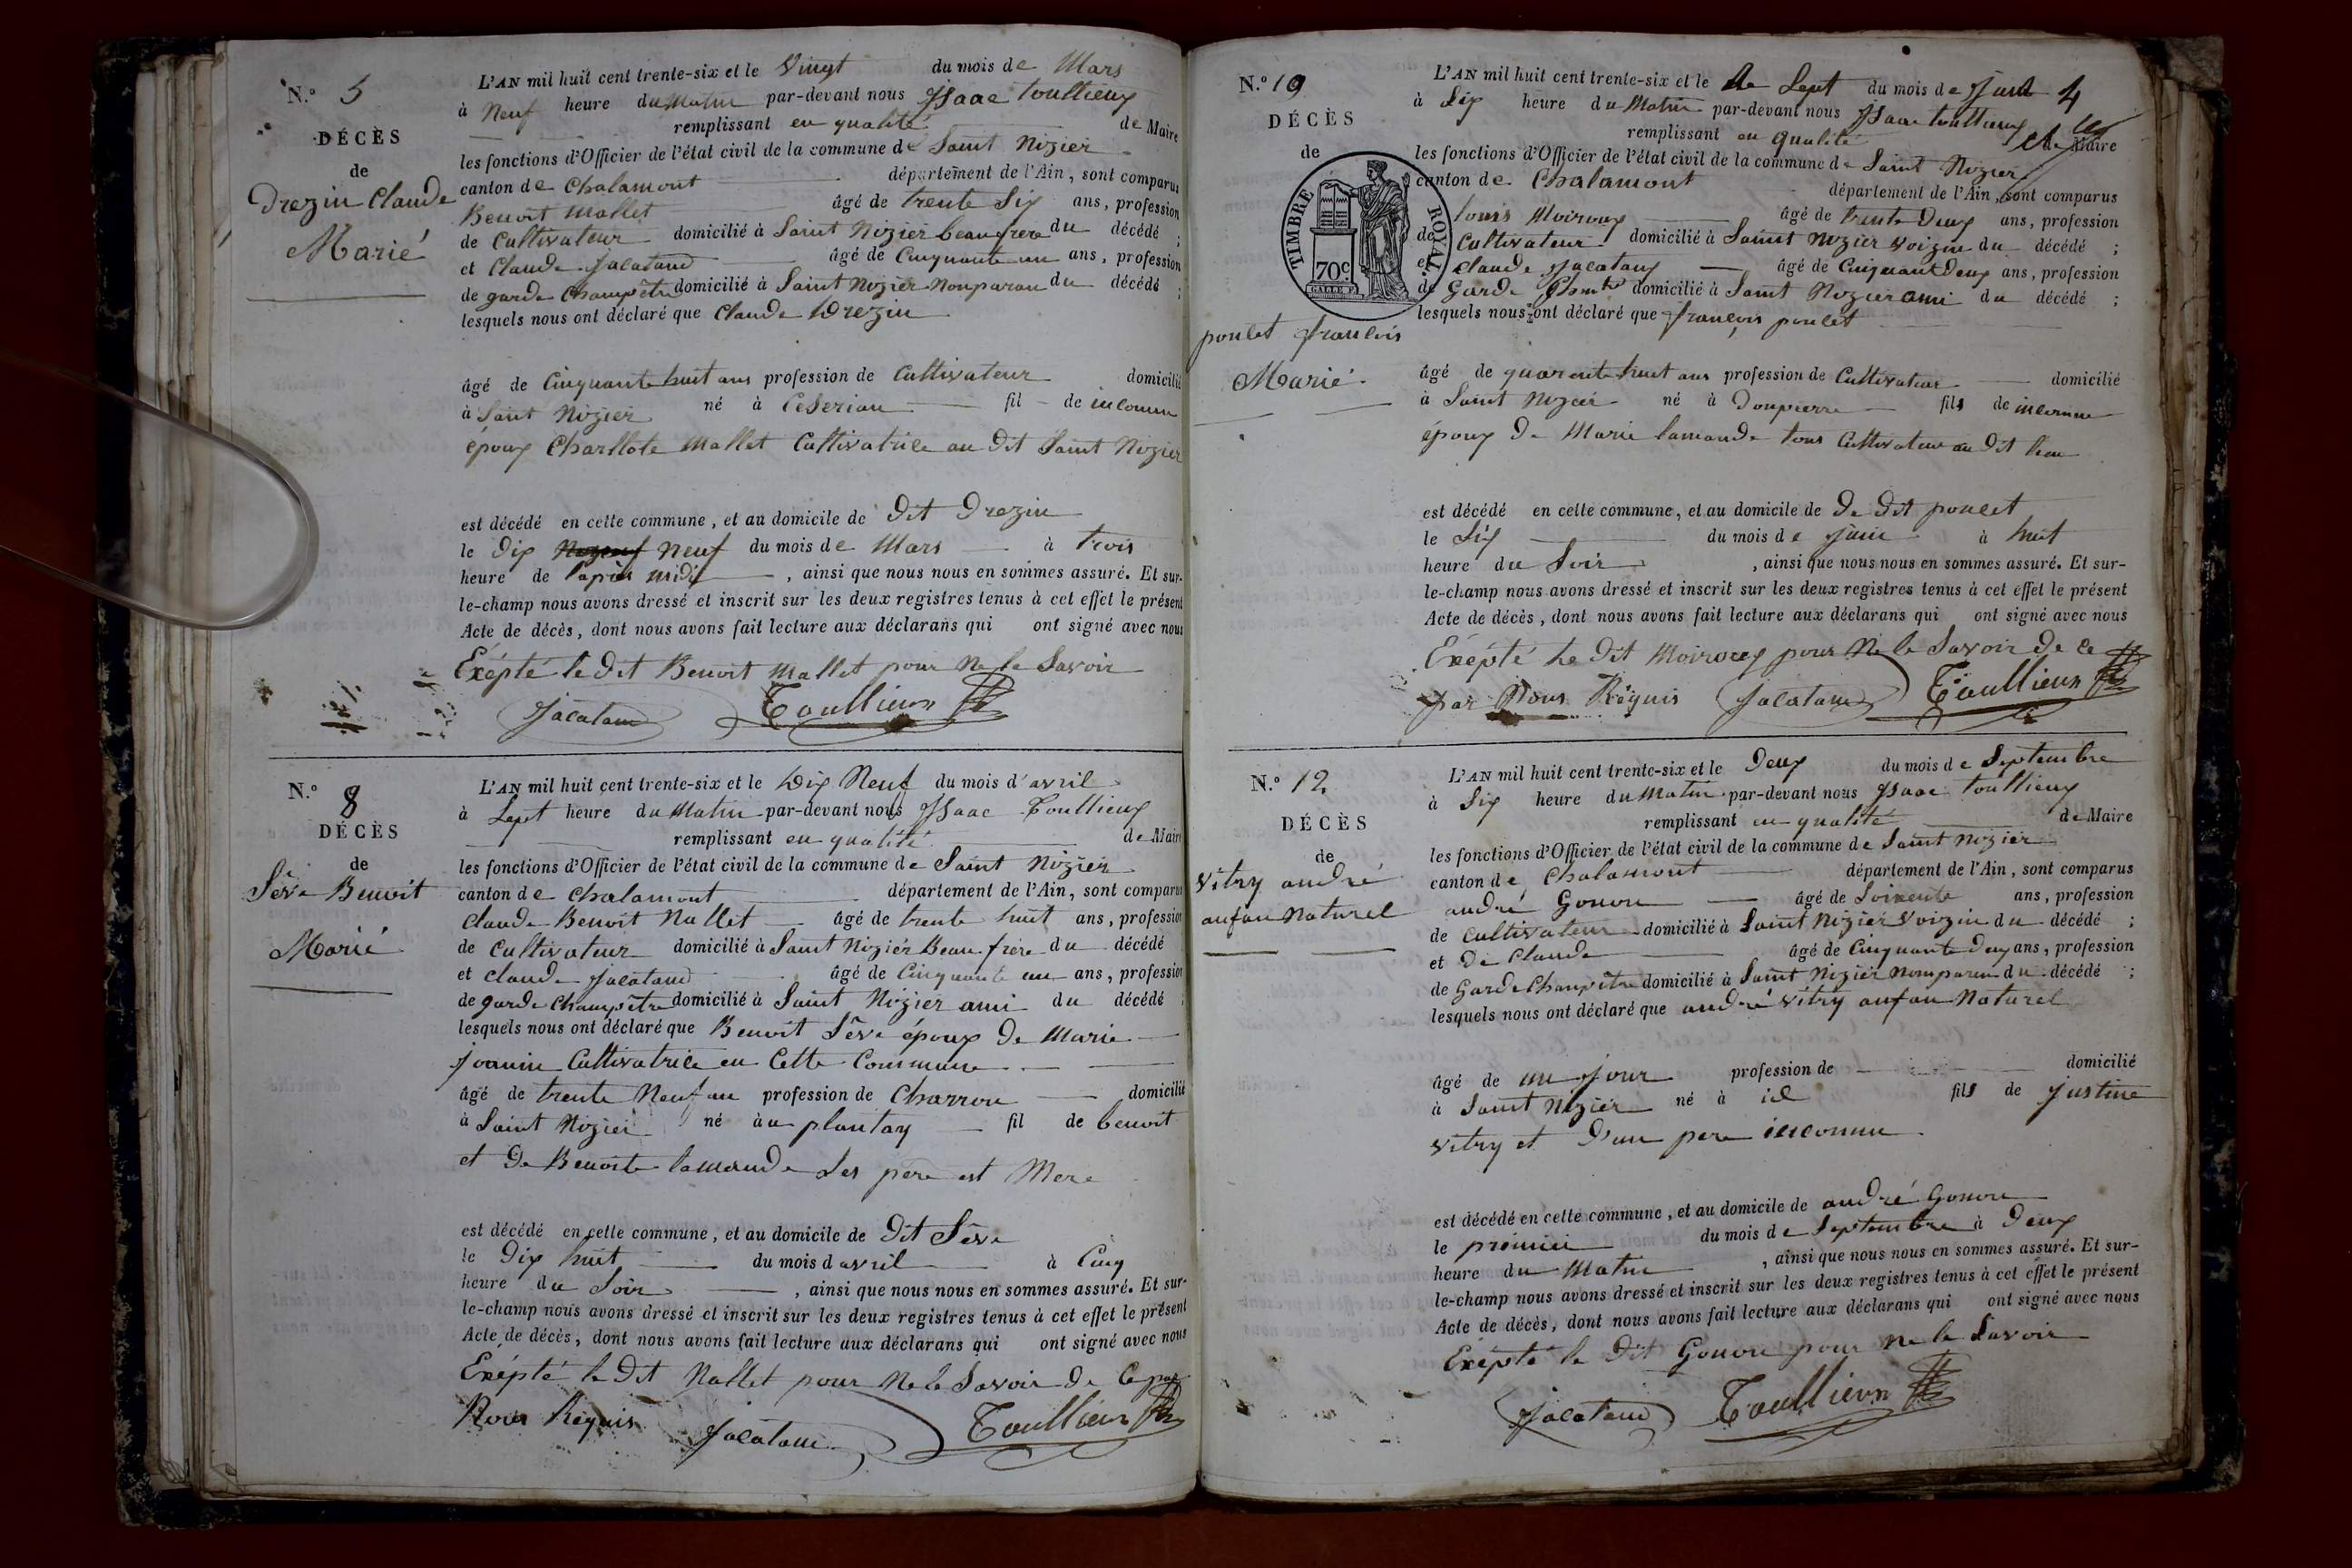 N.o 5
DÉCÈS
de
Drezin Claude
Marié
L'AN mil huit cent trente-six et le Vingt du mois de Mars
à Neuf heure du Matin par-devant nous Isaac toullieux
remplissant en qualité de Maire
les fonctions d'Officier de l'état civil de la commune de Saint Nizier
canton de Chalamont département de l'Ain, sont comparus
Benoit Mallet âgé de trente Six ans, profession
de Cultivateur domicilié à Saint Nizier beaufrere du décédé ;
et Claude Jacataud âgé de Cinquante un ans, profession
de garde Champêtre domicilié à Saint Nizier Nonparan du décédé ;
lesquels nous ont déclaré que Claude Drezin
âgé de Cinquante huit ans profession de Cultivateur domicilié
à Saint Nizier né à Ceserian fil de inconnu
époux Charllote Mallet Cultivatrice au Dit Saint Nizier
est décédé en cette commune, et au domicile de Dit Drezin
le Dix neuf du mois de Mars à trois
heure de l'après midi , ainsi que nous nous en sommes assuré. Et sur-
le-champ nous avons dressé et inscrit sur les deux registres tenus à cet effet le présent
Acte de décès, dont nous avons fait lecture aux déclarans qui ont signé avec nous
Exépté le Dit Benoit Mallet pour Ne le Savoir
Jacataud Toullieux
N.o 8
DÉCÈS
de
Sêve Benoit
Marié
L'AN mil huit cent trente-six et le Dix Neuf du mois d'avril
à Sept heure du Matin par-devant nous Isaac Toullieux
remplissant en qualité de Maire
les fonctions d'Officier de l'état civil de la commune de Saint Nizier
canton de Chalamont département de l'Ain, sont comparus
Claude Benoit Nallet âgé de trente huit ans, profession
de Cultivateur domicilié à Saint Nizier Beau frère du décédé
et Claude Jacataud âgé de Cinquante un ans, profession
de garde Champêtre domicilié à Saint Nizier ami du décédé ;
lesquels nous ont déclaré que Benoit Sêve époux De Marie
Joannin Cultivatrice en Cette Commune
âgé de trente Neuf an profession de Charron domicilié
à Saint Nizier né à au plantay fil de benoit
et De Benoite lamande Ses père et Mere
est décédé en cette commune, et au domicile de Dit Sêve
le Dix huit du mois d avril à Cinq
heure du Soir , ainsi que nous nous en sommes assuré. Et sur-
le-champ nous avons dressé et inscrit sur les deux registres tenus à cet effet le présent
Acte de décès, dont nous avons fait lecture aux déclarans qui ont signé avec nous
Exépté le Dit Nallet pour Ne le Savoir De Ce par
Nous Requis Jacataud Toullieux
N.o 10
DÉCÈS
de
TIMBRE ROYAL.
70c.
poulet françois
Marié
L'AN mil huit cent trente-six et le Sept du mois de Juin 4
à Six heure du Matin par-devant nous Isaac toullieux
remplissant en qualité de Maire
les fonctions d'Officier de l'état civil de la commune de Saint Nizier
canton de Chalamont département de l'Ain, sont comparus
louis Moiroux âgé de trente Deux ans, profession
de Cultivateur domicilié à Saint Nizier Voizin du décédé ;
et Claude Jacataux âgé de Cinquant Deux ans, profession
de Garde domicilié à Saint Nizier ami du décédé ;
lesquels nous ont déclaré que françois poulet
âgé de quarente huit ans profession de Cultivateur domicilié
à Saint Nizier né à Donpierre fils de inconnu
époux De Marie lamande tous Cultivateur au Dit lieu
est décédé en cette commune, et au domicile de De Dit poulet
le Six du mois de juin à huit
heure du Soir , ainsi que nous nous en sommes assuré. Et sur-
le-champ nous avons dressé et inscrit sur les deux registres tenus à cet effet le présent
Acte de décès, dont nous avons fait lecture aux déclarans qui ont signé avec nous
Exépté Le Dit Moiroux pour Ne le Savoir De Ce
par Nous Requis Jacataud Toullieux
N.o 12
DÉCÈS
de
Vitry andré
anfan Naturel
L'AN mil huit cent trente-six et le Deux du mois de Septembre
à Six heure du Matin par-devant nous Isaac toullieux
remplissant en qualité de Maire
les fonctions d'Officier de l'état civil de la commune de Saint Nizier
canton de Chalamont département de l'Ain, sont comparus
andré Gonon âgé de Soixente ans, profession
de Cultivateur domicilié à Saint Nizier Voizin du décédé ;
et De Claude âgé de Cinquante deux ans, profession
de Garde Champêtre domicilié à Saint Nizier Nonparan du décédé ;
lesquels nous ont déclaré que andré Vitry anfan Naturel
âgé de un jour profession de domicilié
à Saint Nizier né à id fils de justine
Vitry et D'un pere inconnu
est décédé en cette commune, et au domicile de andré Gonon
le premier du mois de Septembre à Deux
heure du Matin , ainsi que nous nous en sommes assuré. Et sur-
le-champ nous avons dressé et inscrit sur les deux registres tenus à cet effet le présent
Acte de décès, dont nous avons fait lecture aux déclarans qui ont signé avec nous
Exépté le Dit Gonon pour ne le Savoir
Jacataud Toullieux